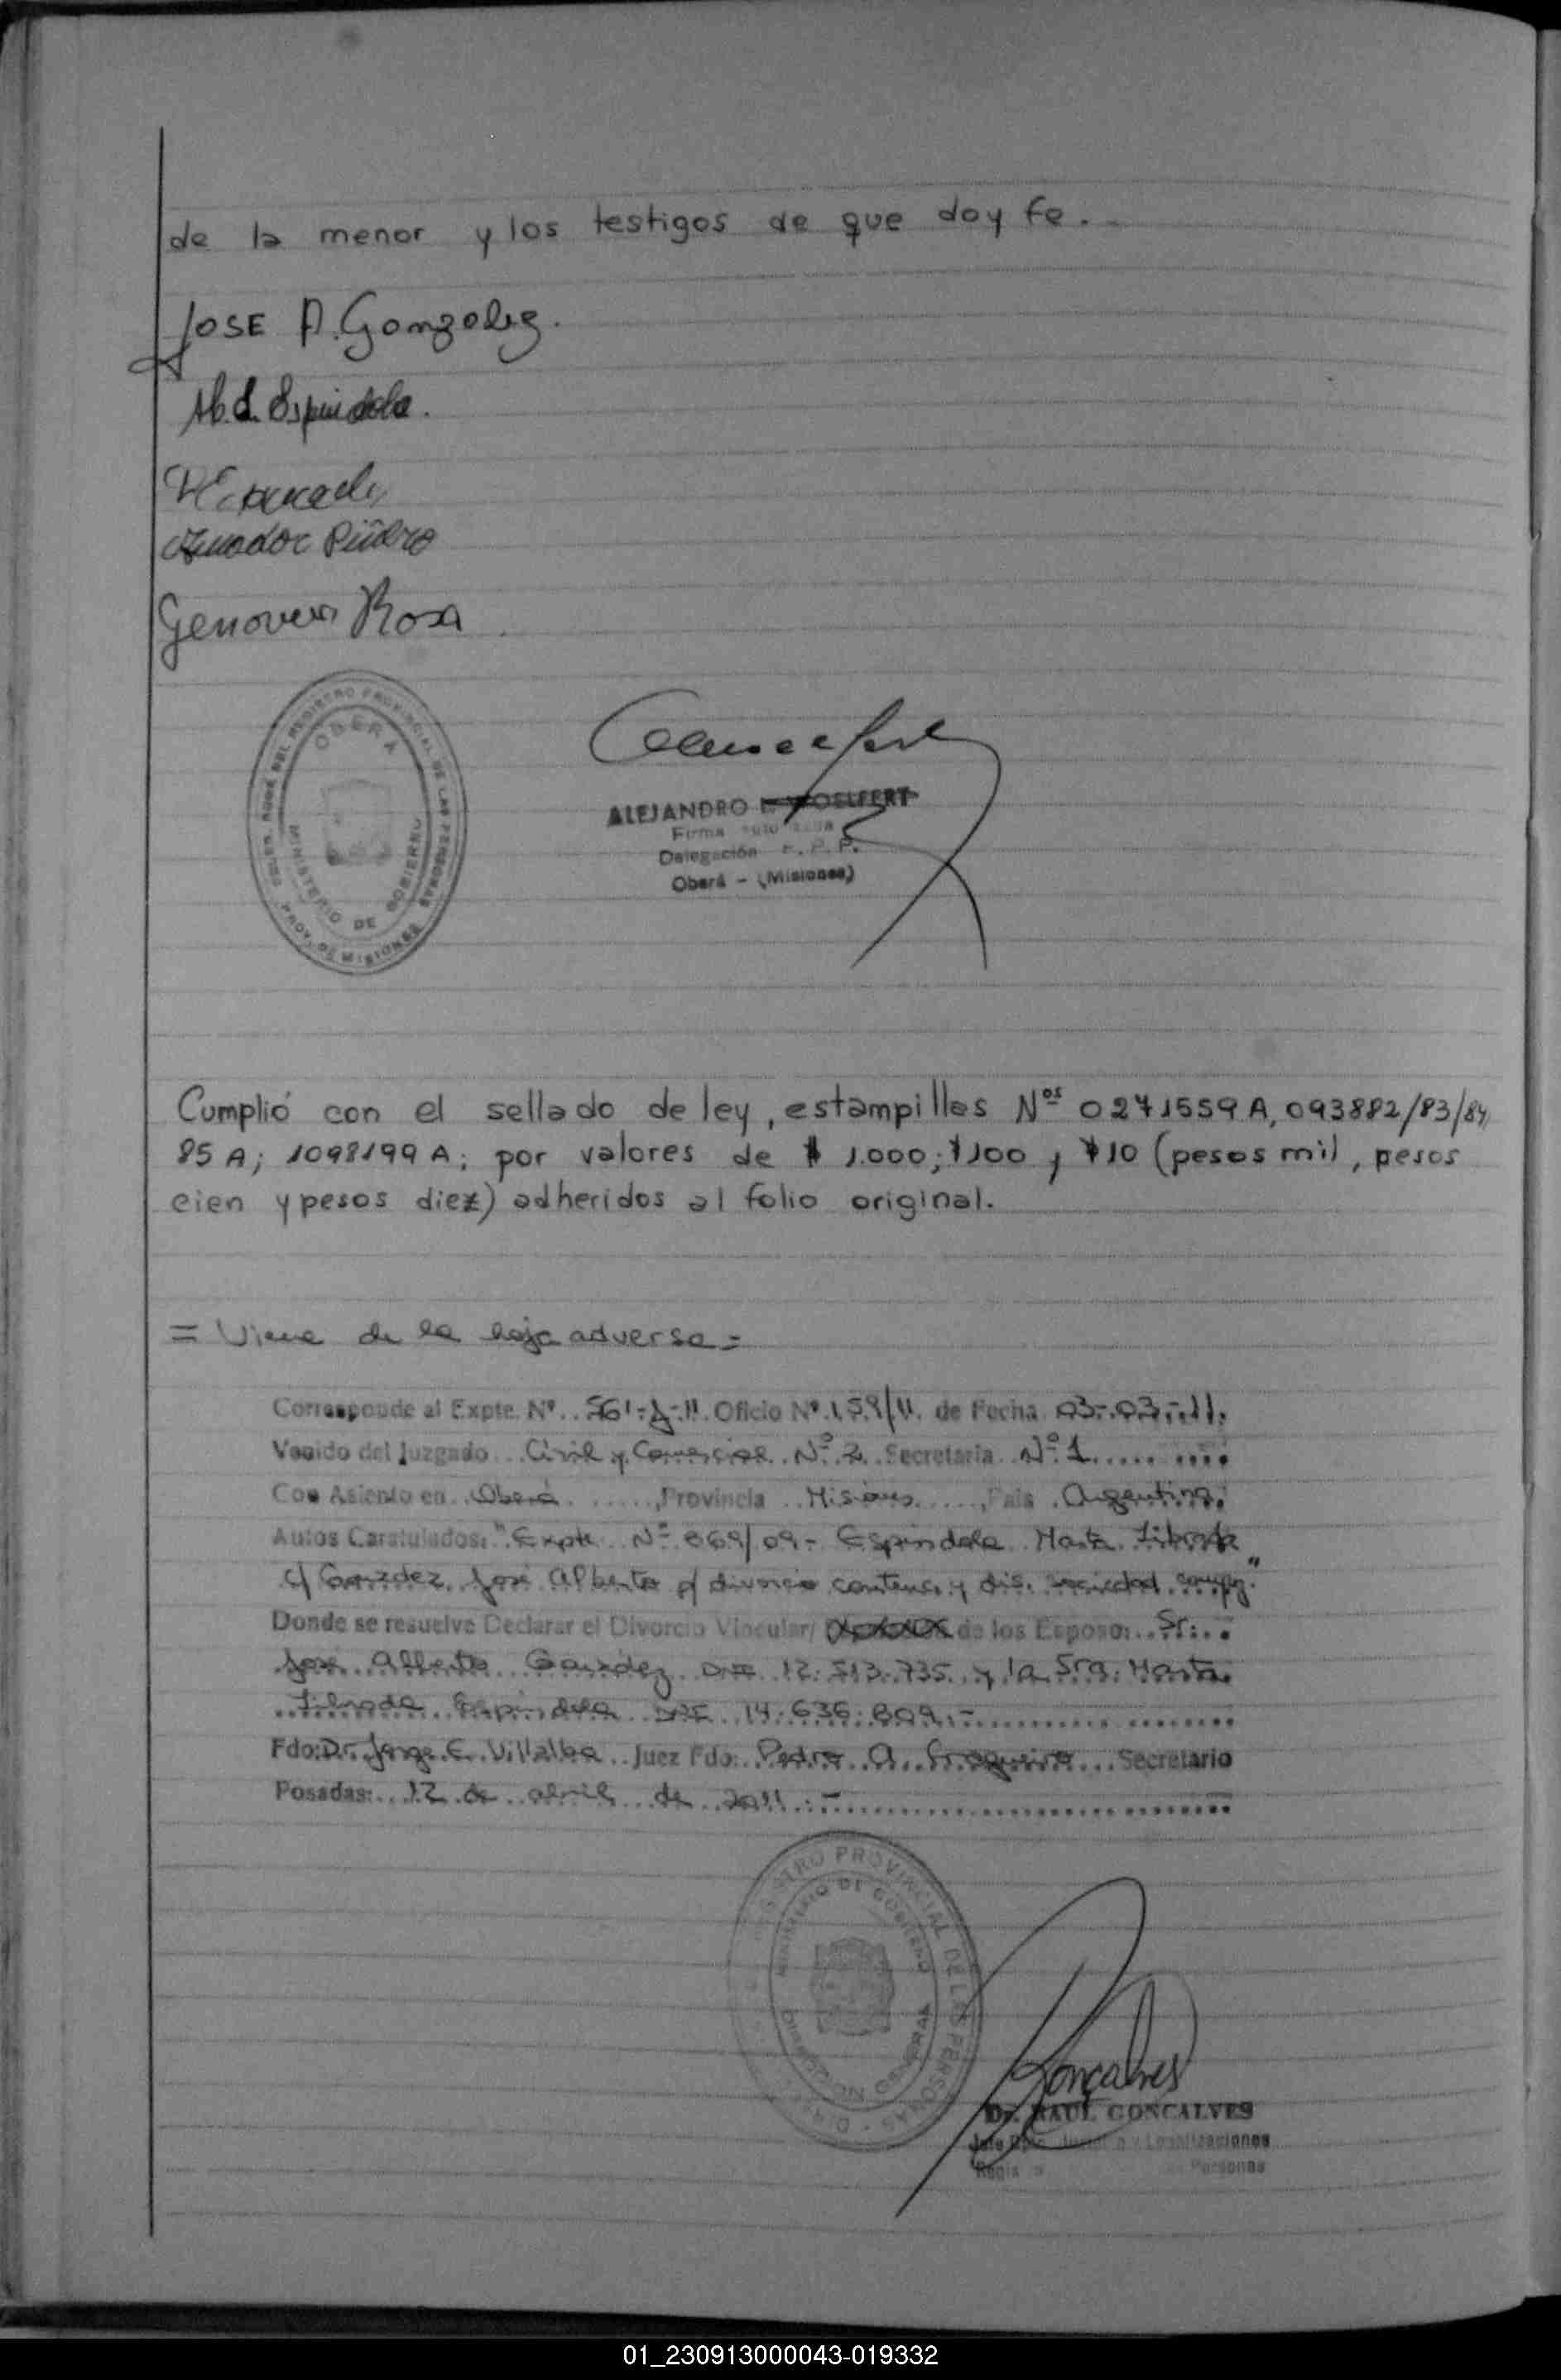 de la menor y los testigos de que doy fe.
JOSE A. Gonzalez.
M. L. Espindola.
Amador Piñero
Genoveva Rosa
DEL REGISTRO PROVINCIAL DE LAS PERSONAS
OBERA
MINISTERIO DE GOBIERNO
PROV. DE MISIONES
ALEJANDRO E. WOELFERT
Firma
Delegación R. P. P.
Oberá - (Misiones)
Cumplió con el sellado de ley, estampillas Nos 0271559 A, 093882/83/84/
85 A; 1098199 A; por valores de $ 1.000; $100 y $10 (pesos mil, pesos
cien y pesos diez) adheridos al folio original.
= Viene de la hoja adversa =
Corresponde al Expte. Nº 561-J-11 Oficio Nº 159/11 de Fecha 03-03-11.
Venido del Juzgado Civil y Comercial Nº 2 Secretaria Nº 1
Con Asiento en Oberá, Provincia Misiones, Pais Argentina.
Autos Caratulados: "Expte Nº 869/09- Espindola Marta Librada
c/ González José Alberto s/ divorcio contenc. y dis. sociedad conyg."
Donde se resuelve Declarar el Divorcio Vincular/ de los Esposo: Sr.
José Alberto González DNI 12.513.735 y la Sra. Marta
Librada Espindola DNI 14.636.809.-
Fdo: Dr. Jorge E. Villalba Juez Fdo: Pedro A. Secretario
Posadas: 12 de abril de 2011.-
REGISTRO PROVINCIAL DE LAS PERSONAS
MINISTERIO DE GOBIERNO
DIRECCION GENERAL
Gonçalves
Dr. RAUL GONCALVES
Jefe Dpto. y Legalizaciones
Personas
01_230913000043-019332